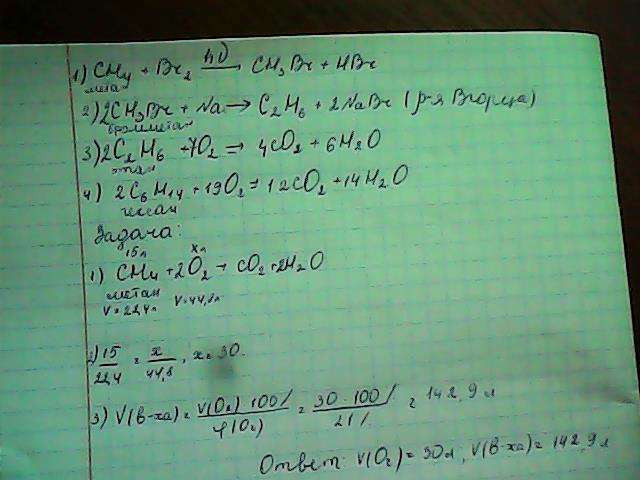 1) CH4 + Br2 hν→ CH3Br + HBr
метан
2) 2CH3Br + Na → C2H6 + 2NaBr (р-я Вюрца)
бромметан
3) 2C2H6 + 7O2 = 4CO2 + 6H2O
этан
4) 2C6H14 + 19O2 = 12CO2 + 14H2O
гексан
Задача:
15л xл
1) CH4 + 2O2 → CO2 + 2H2O
метан
V=22,4л V=44,8л
2) 15/22,4 = x/44,8, x=30.
3) V(в-ха) = V(O2)·100%/φ(O2) = 30·100%/21% = 142,9л
Ответ: V(O2)=30л, V(в-ха)=142,9л